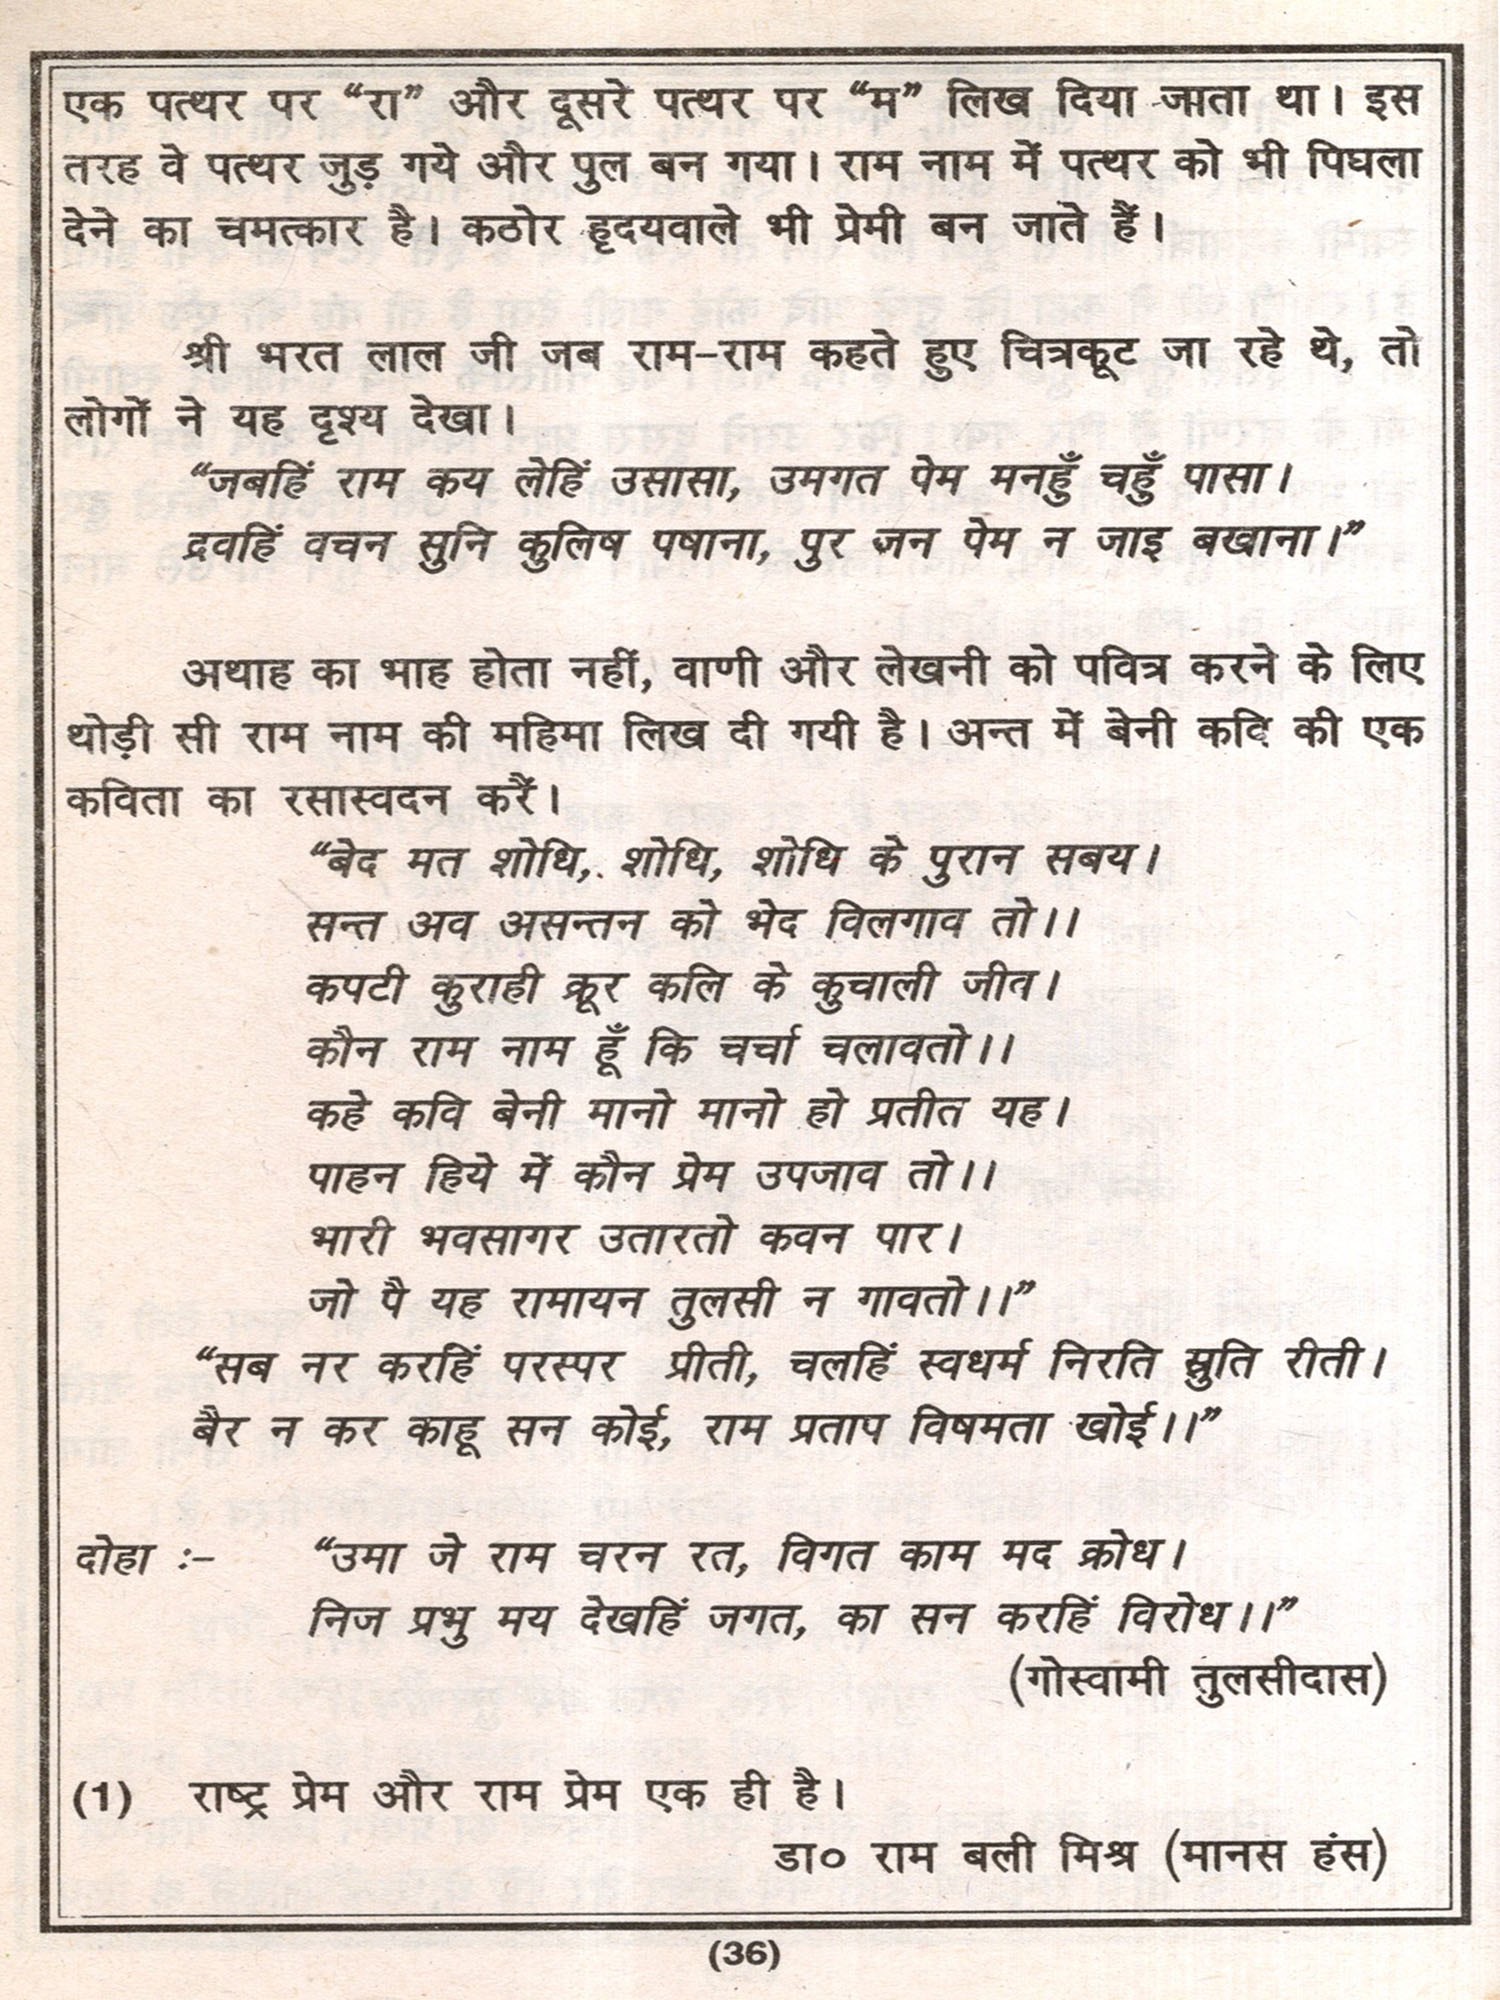 एक पत्थर पर “रा” और दूसरे पत्थर पर “म” लिख दिया जाता था। इस
तरह वे पत्थर जुड़ गये और पुल बन गया। राम नाम में पत्थर को भी पिघला
देने का चमत्कार है। कठोर हृदयवाले भी प्रेमी बन जाते हैं।
श्री भरत लाल जी जब राम-राम कहते हुए चित्रकूट जा रहे थे, तो
लोगों ने यह दृश्य देखा।
“जबहिं राम कय लेहिं उसासा, उमगत पेम मनहुँ चहुँ पासा।
द्रवहिं वचन सुनि कुलिष पषाना, पुर जन पेम न जाइ बखाना।”
अथाह का भाह होता नहीं, वाणी और लेखनी को पवित्र करने के लिए
थोड़ी सी राम नाम की महिमा लिख दी गयी है। अन्त में बेनी कवि की एक
कविता का रसास्वदन करें।
“बेद मत शोधि, शोधि, शोधि के पुरान सबय।
सन्त अव असन्तन को भेद विलगाव तो।।
कपटी कुराही क्रूर कलि के कुचाली जीव।
कौन राम नाम हूँ कि चर्चा चलावतो।।
कहे कवि बेनी मानो मानो हो प्रतीत यह।
पाहन हिये में कौन प्रेम उपजाव तो।।
भारी भवसागर उतारतो कवन पार।
जो पै यह रामायन तुलसी न गावतो।।”
“सब नर करहिं परस्पर प्रीती, चलहिं स्वधर्म निरति स्रुति रीती।
बैर न कर काहू सन कोई, राम प्रताप विषमता खोई।।”
दोहा :- “उमा जे राम चरन रत, विगत काम मद क्रोध।
निज प्रभु मय देखहिं जगत, का सन करहिं विरोध।।”
(गोस्वामी तुलसीदास)
(1) राष्ट्र प्रेम और राम प्रेम एक ही है।
डा० राम बली मिश्र (मानस हंस)
(36)